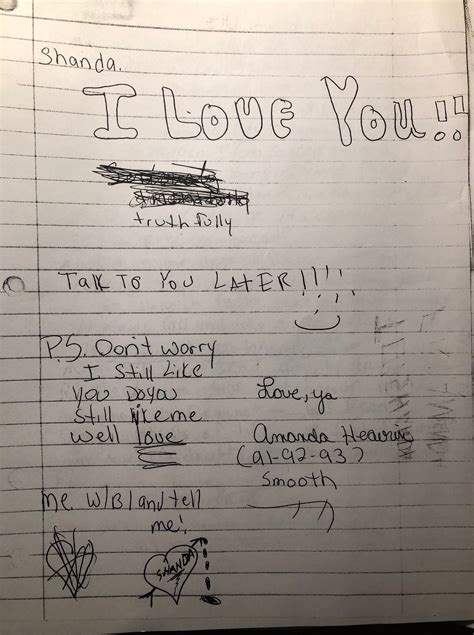 Shanda.
I LOVE YOU!!
truthfully
TALK TO YOU LATER!!!!!
P.S. Don't worry
I Still Like
you Do you
Still like me
well love
me. W/B/ and tell
me!
Love, ya
Amanda
(91-92-93)
Smooth
SHANDA